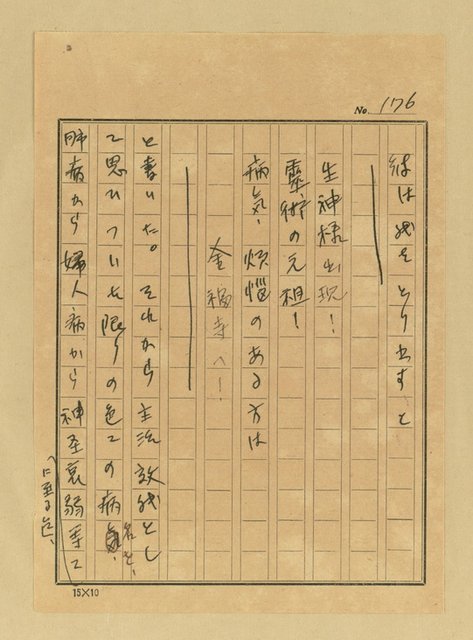 No. 176
紙をとり出すと
生神様出現!
靈術の元祖!
病気、煩悩のある方は
金福寺へ!
と書いた。それから主治效能とし
て思ひついた限りの色々の病名を、
肺病から婦人病から神圣衰弱等々
に至る迄、
15×10